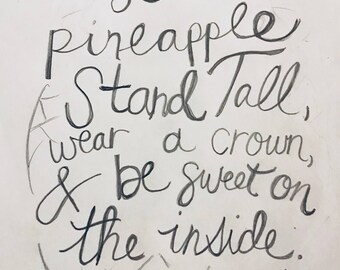 pineapple
Stand Tall,
wear a crown,
& be sweet on
the inside.